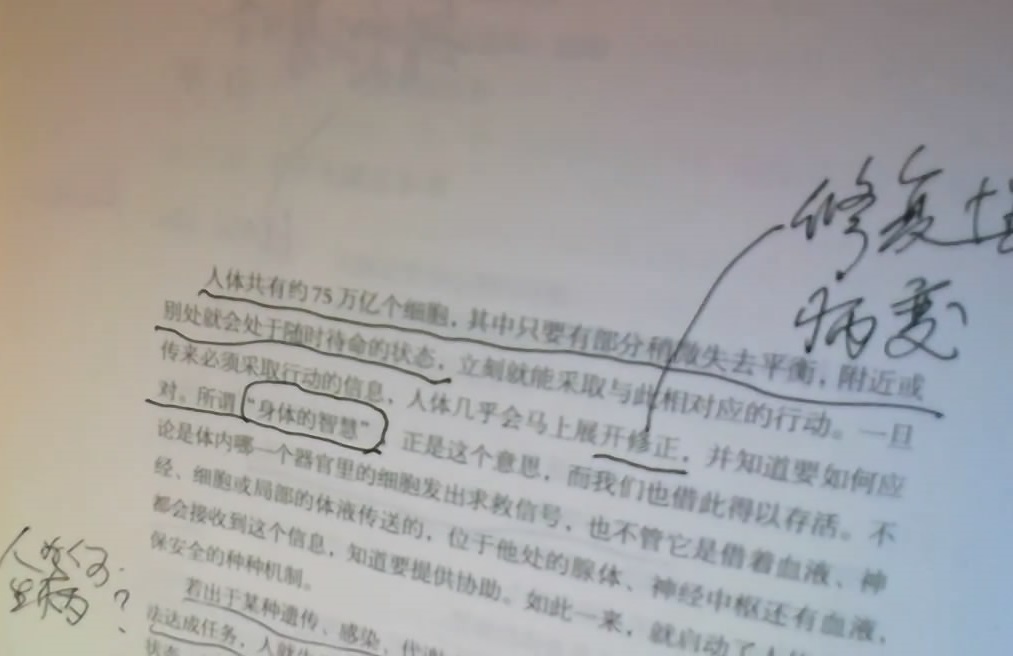 修复
病变
人体共有约75万亿个细胞，其中只要有部分稍微失去平衡，附近或
别处就会处于随时待命的状态，立刻就能采取与此相对应的行动。一旦
传来必须采取行动的信息，人体几乎会马上展开修正，并知道要如何应
对。所谓“身体的智慧”，正是这个意思，而我们也借此得以存活。不
论是体内哪一个器官里的细胞发出求救信号，也不管它是借着血液、神
经、细胞或局部的体液传送的，位于他处的腺体、神经中枢还有血液，
都会接收到这个信息，知道要提供协助。如此一来，就启动了人
保安全的种种机制。
人为何
生病？
若出于某种遗传、感染、代谢
法达成任务，人就
状态